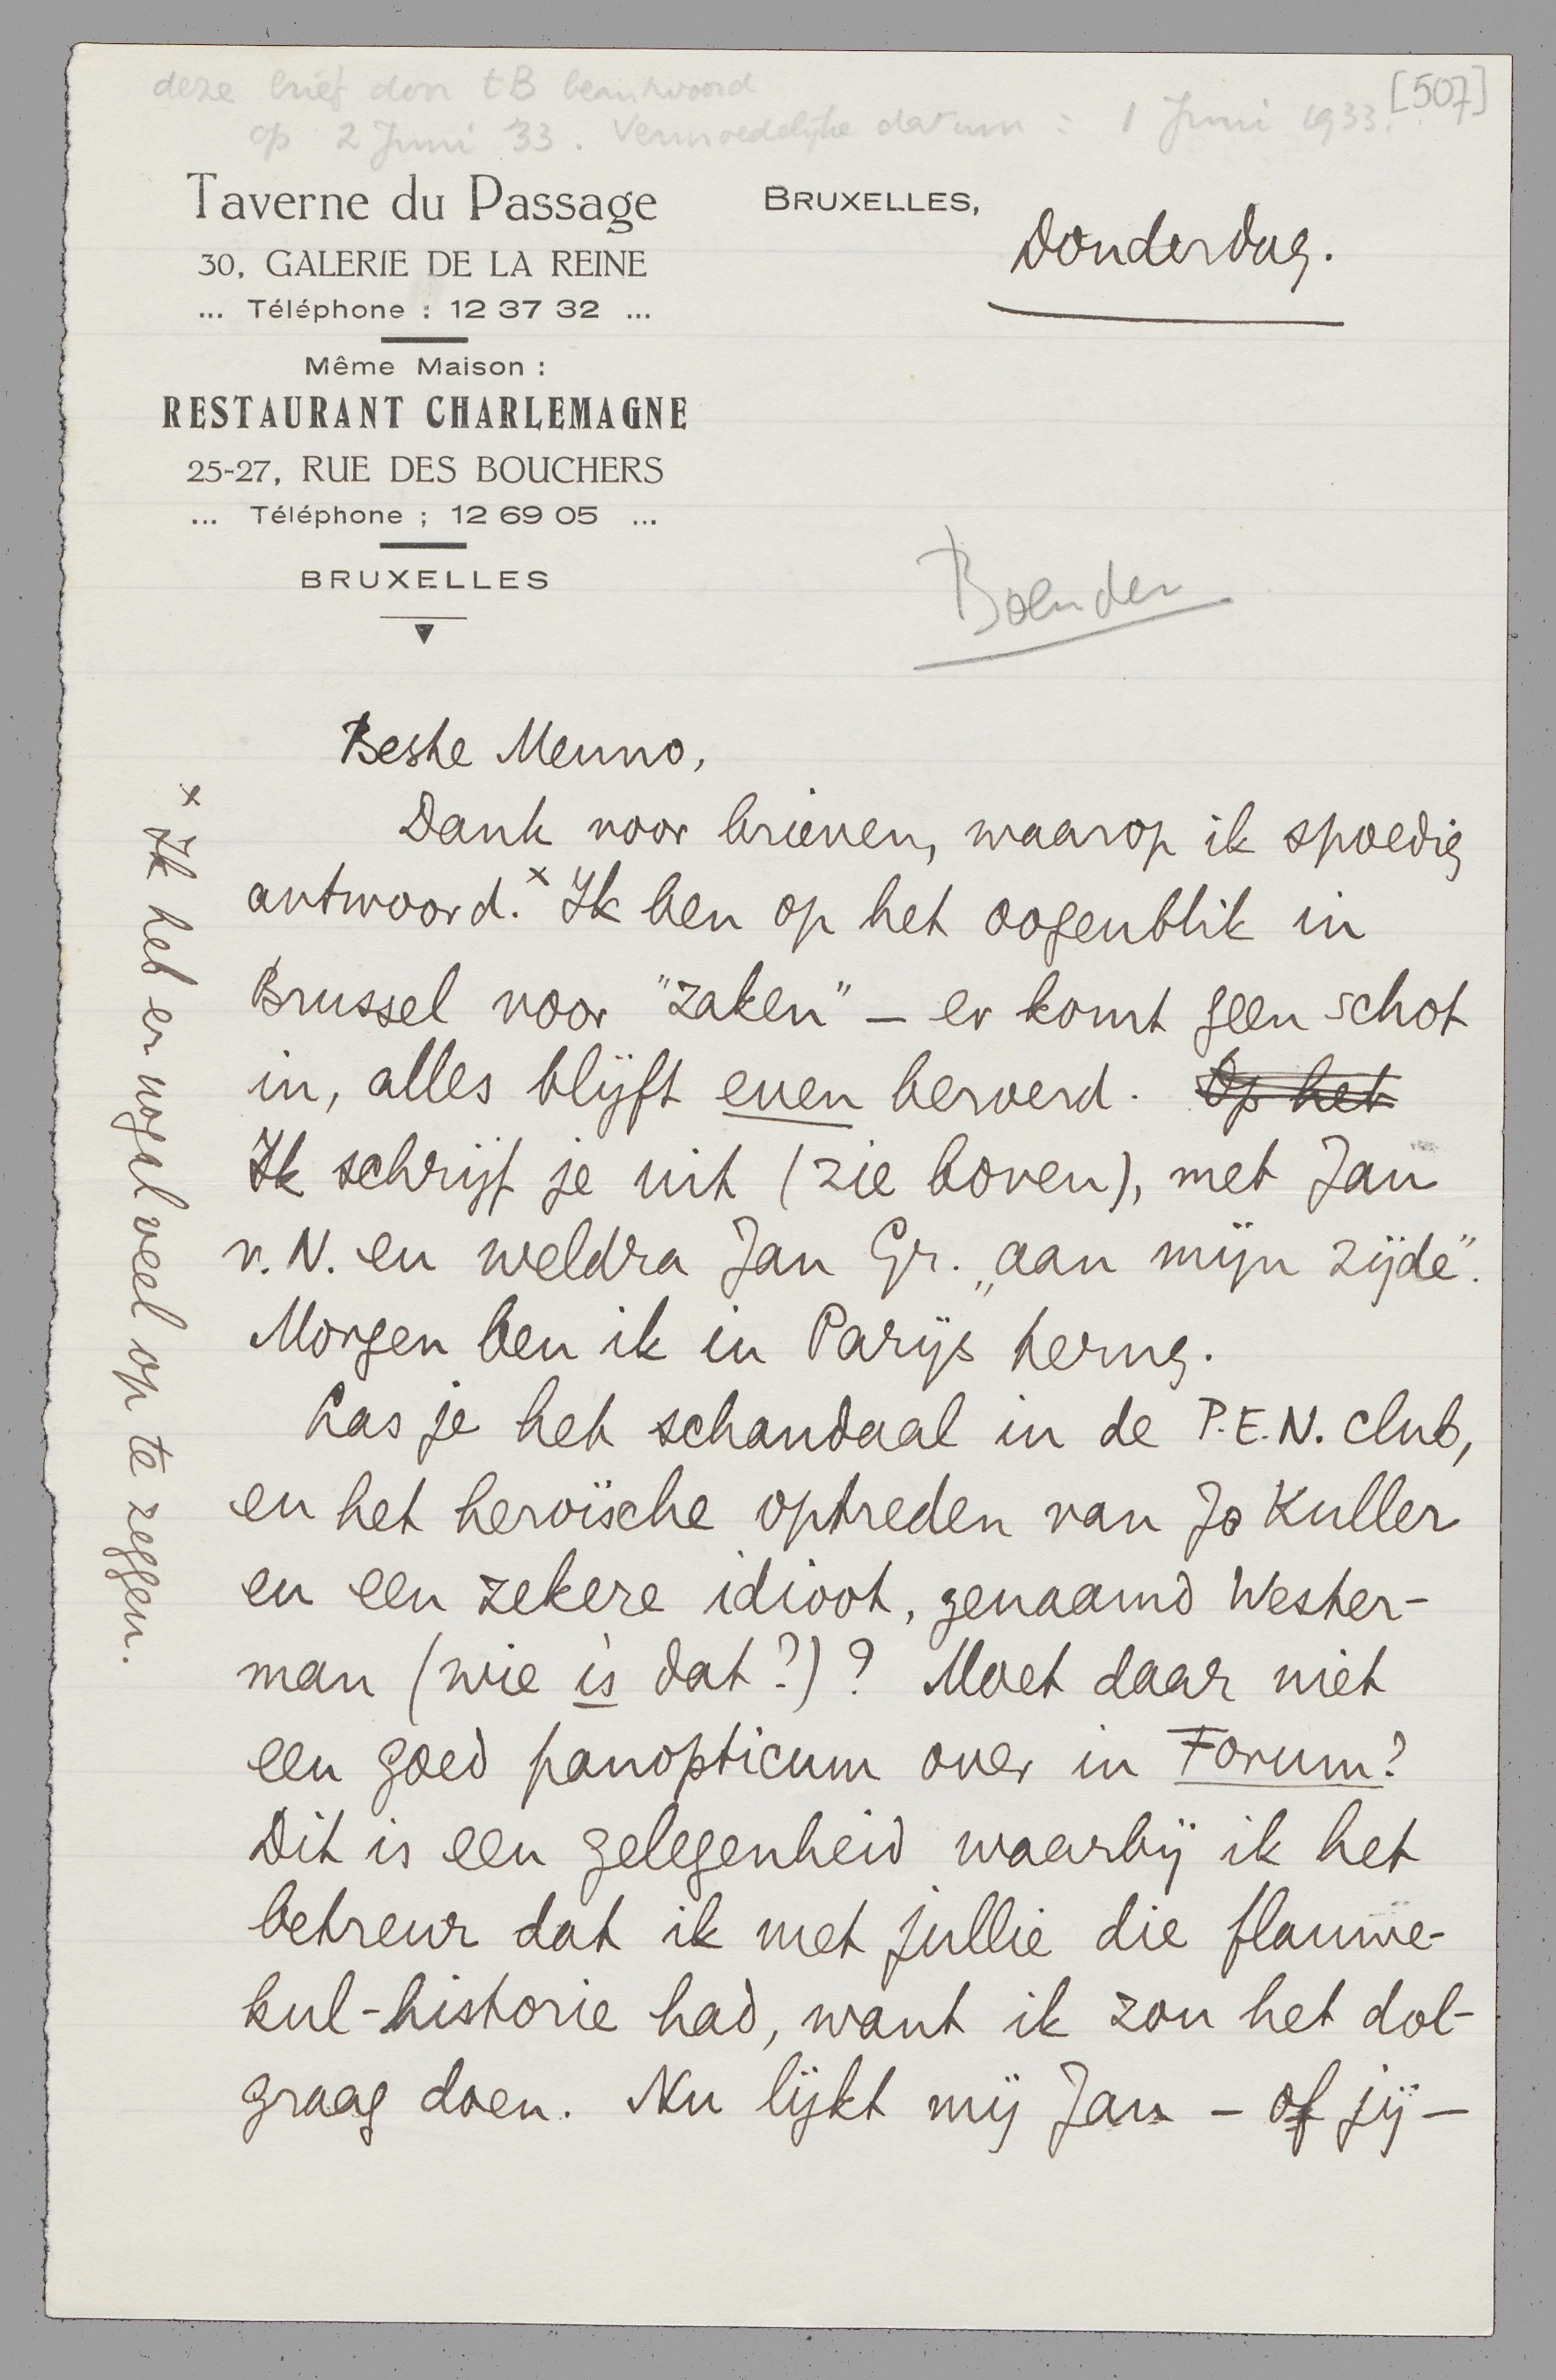 deze brief door tB beantwoord
op 2 Juni '33. Vermoedelijke datum = 1 Juni 1933.
[507]
Taverne du Passage
30, GALERIE DE LA REINE
... Téléphone : 12 37 32 ...
Même Maison :
RESTAURANT CHARLEMAGNE
25-27, RUE DES BOUCHERS
... Téléphone ; 12 69 05 ...
BRUXELLES
BRUXELLES,
Donderdag.
Beste Menno,
Dank voor brieven, waarop ik spoedig
antwoord.x Ik ben op het oogenblik in
Brussel voor "zaken" – er komt geen schot
in, alles blijft even beroerd. Op het
Ik schrijf je uit (zie boven), met Jan
v. N. en weldra Jan Gr. „aan mijn zijde".
Morgen ben ik in Parijs terug.
Las je het schandaal in de P.E.N. club,
en het heroïsche optreden van Jo Kuller
en een zekere idioot, genaamd Wester-
man (wie is dat?)? Moet daar niet
een goed panopticum over in Forum?
Dit is een gelegenheid waarbij ik het
betreur dat ik met jullie die flauwe-
kul-historie had, want ik zou het dol-
graag doen. Nu lijkt mij Jan – of jij –
x Ik heb er nogal veel op te zeggen.